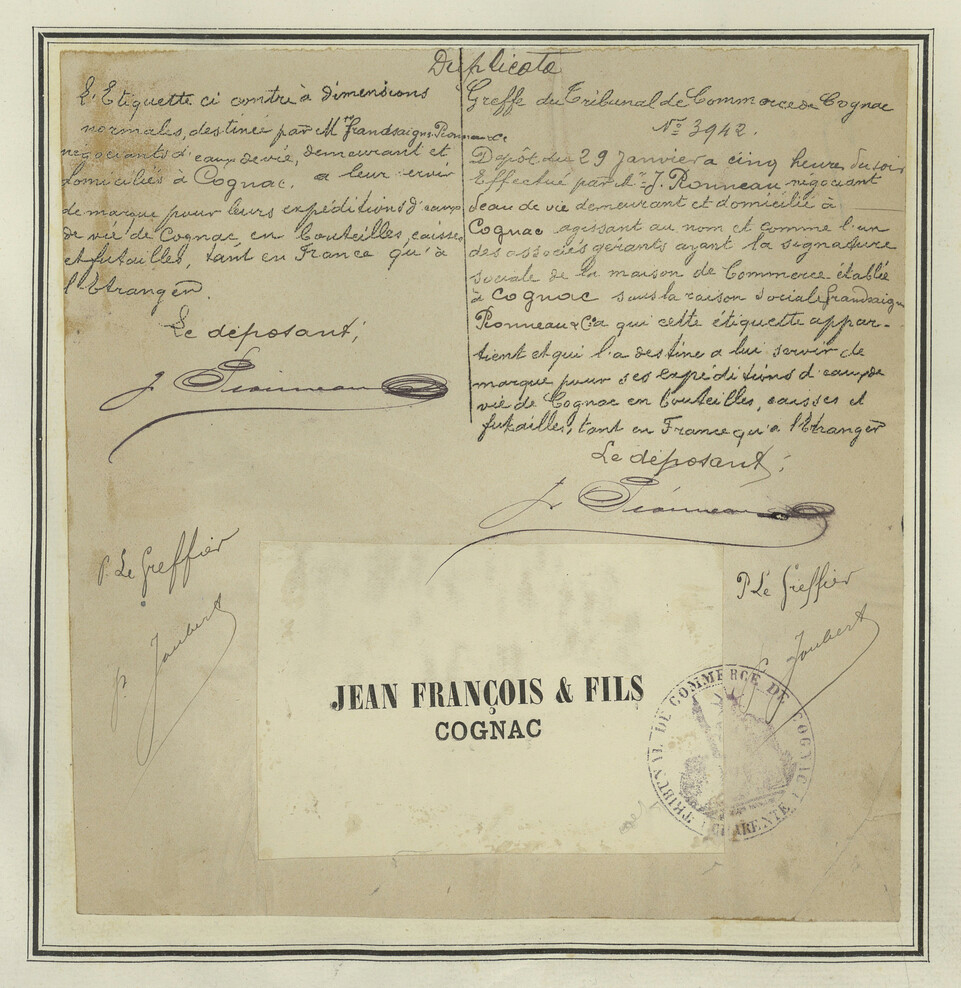 Duplicata
L'Etiquette ci contre à dimensions
normales, destinée par M.rs Frandsaigne Pionneau & Cie
négociants d'eaux de vie, demeurant et
domiciliés à Cognac, a leur servir
de marque pour leurs expéditions d'eaux
de vie de Cognac en bouteilles, caisses
et futailles, tant en France qu'à
l'Etranger.
Le déposant,
J. Pionneau
Greffe du Tribunal de Commerce de Cognac
No 3942.
Dépôt du 29 Janvier a cinq heures du soir
Effectué par Mr J. Pionneau, négociant
d'eau de vie demeurant et domicilié à
Cognac agissant au nom et comme l'un
des associés gérants ayant la signature
sociale de la maison de Commerce établie
à Cognac sous la raison sociale Frandsaigne
Pionneau & Cie a qui cette étiquette appar-
tient et qui l'a destine a lui servir de
marque pour ses expéditions d'eaux de
vie de Cognac en bouteilles, caisses et
futailles, tant en France qu'a l'Etranger
Le déposant,
J. Pionneau
P. Le Greffier
P. Joubert
P. Le Greffier
Joubert
JEAN FRANÇOIS & FILS
COGNAC
TRIBUNAL DE COMMERCE DE COGNAC
CHARENTE